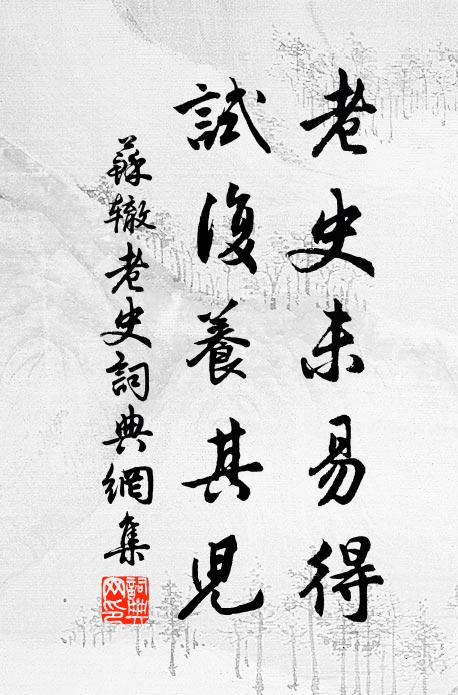 老史未易得
試復養其兒
蘇辙老史詞典網集